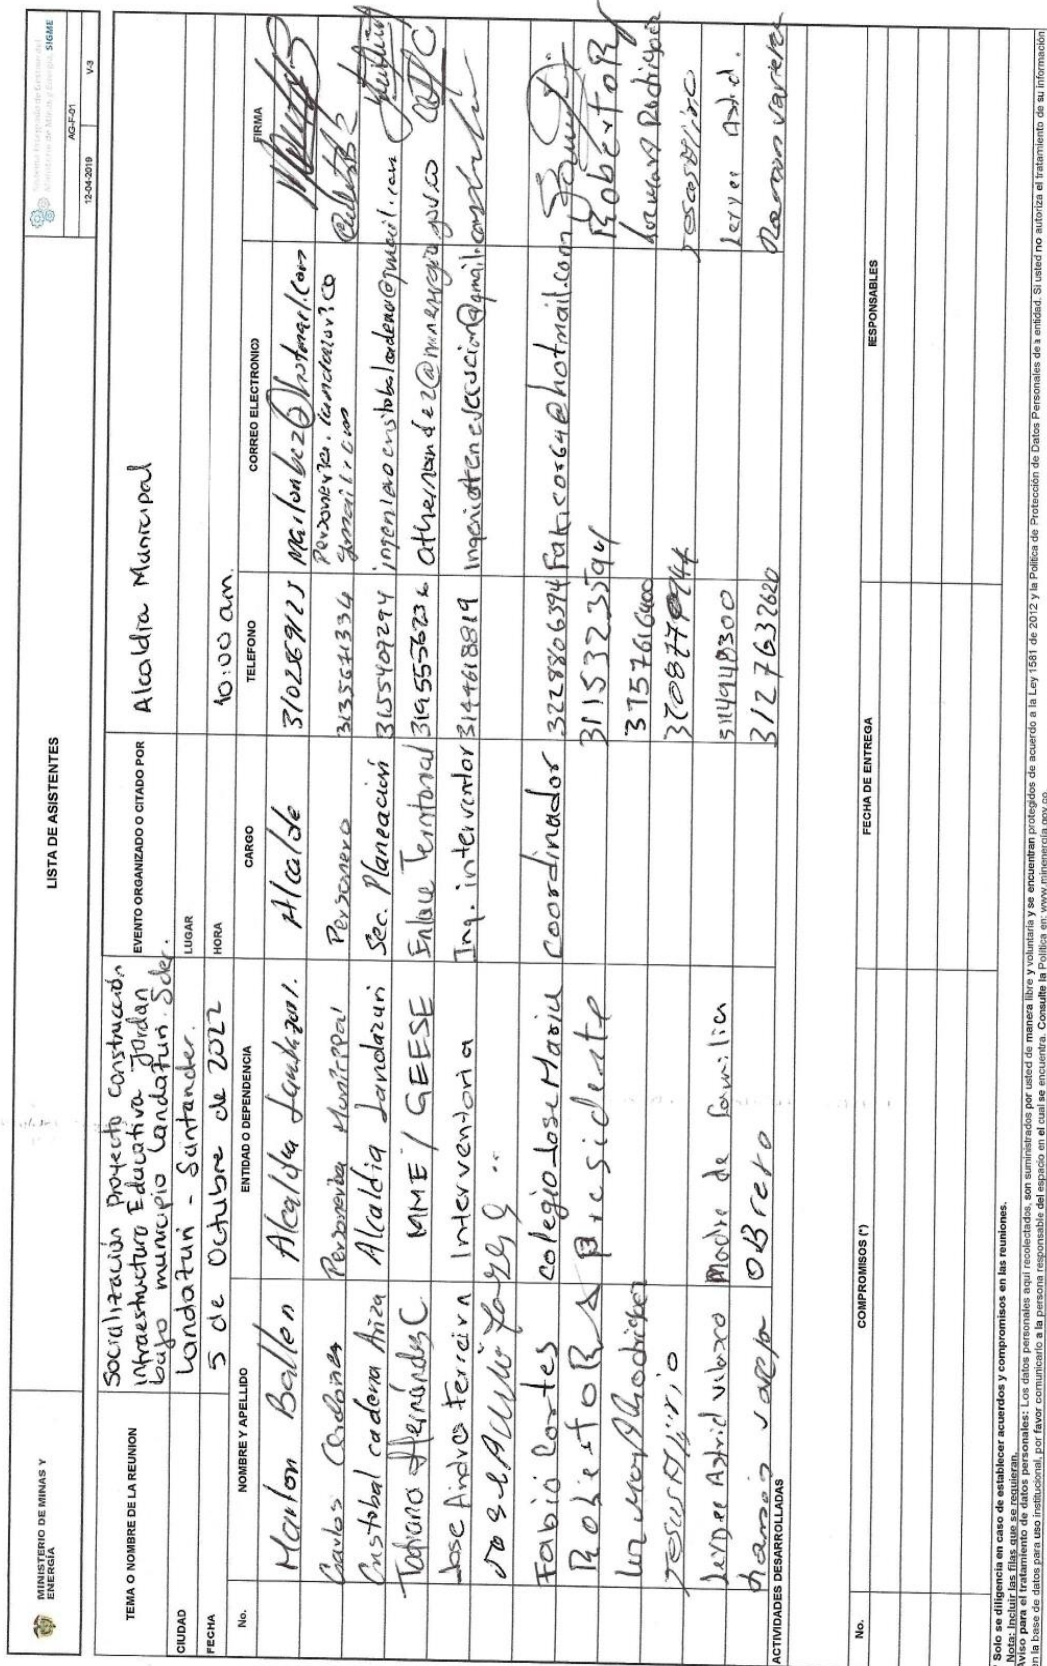 MINISTERIO DE MINAS Y
ENERGÍA
LISTA DE ASISTENTES
SIGME
AG-F-01
12-04-2019 V-3
TEMA O NOMBRE DE LA REUNION
Socialización Proyecto construcción
Infraestructura Educativa Jordan
bajo municipio Landazuri. Sder.
EVENTO ORGANIZADO O CITADO POR
Alcaldia Municipal
CIUDAD
Landazuri - Santander.
LUGAR
FECHA
5 de Octubre de 2022
HORA
10:00 am.
No. NOMBRE Y APELLIDO ENTIDAD O DEPENDENCIA CARGO TELEFONO CORREO ELECTRONICO FIRMA
Marlon Ballen Alcaldia Landazuri. Alcalde 3102569125
Carlos Personeria Municipal Personero 3135671334
Cristobal cadena Ariza Alcaldia Landazuri Sec. Planeación 3155409294 ingenierocristobalcadena@gmail.com
Tatiana Hernández C. MME / GEESE Enlace Territorial athernandez@minenergia.gov.co
Jose Andres Ferreira Interventoria Ing. interventor 3144618819
Fabio Cortes Colegio Jose Maria Coordinador 3228806394 Fabicor64@hotmail.com
Roberto R Presidente 3115323594 Roberto R
Luz Mary Rhodriguez Luz Mary Rhodriguez
Leryee Astrid Velasco Madre de familia Leryee Astrid.
Ramon Varela OBrero 3127632620 Ramon Varela
ACTIVIDADES DESARROLLADAS
No. COMPROMISOS (*) FECHA DE ENTREGA RESPONSABLES
Solo se diligencia en caso de establecer acuerdos y compromisos en las reuniones.
Nota: Incluir las filas que se requieran.
Aviso para el tratamiento de datos personales: Los datos personales aquí recolectados, son suministrados por usted de manera libre y voluntaria y se encuentran protegidos de acuerdo a la Ley 1581 de 2012 y la Política de Protección de Datos Personales de entidad. Si usted no autoriza el tratamiento de su información
en la base de datos para uso institucional, por favor comunicarlo a la persona responsable del espacio en el cual se encuentra. Consulte la Política en: www.minenergía.gov.co